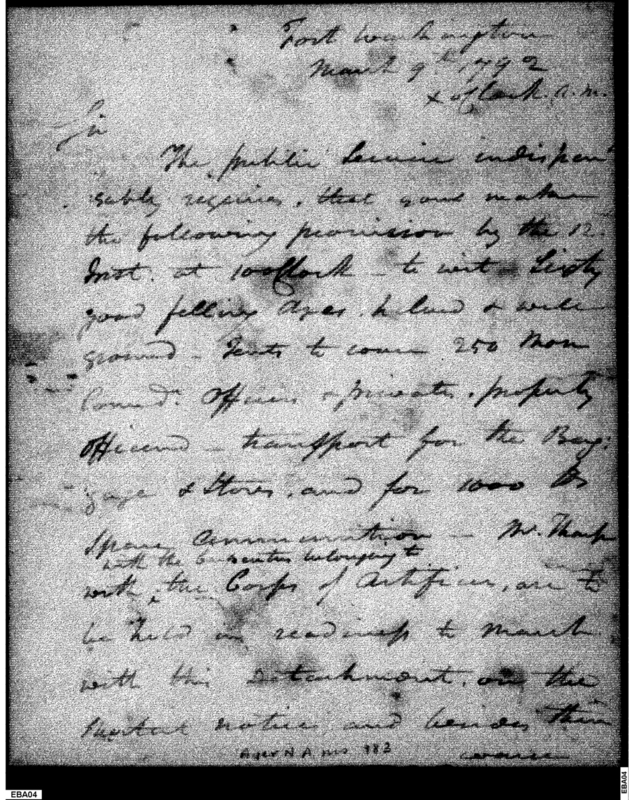 Fort Washington
March 9th 1792
o'Clock a.m.
Sir
The public Service indispen
sably requires, that you make
the following provision by the 12
Inst. at 10 oClock – to wit – Sixty
good felling Axes, helved & well
ground – Tents to cover 250 Non
Comd. Officers & privates, properly
officered – transport for the Bag:
gage & Stores, and for 1000 lbs
Spare ammunition – Mr. Tharp
with the belonging to
with the Corps of Artificers, are to
be held in readiness to march
with this detachment, on the
shortest notice, and besides their
EBA04
EBA04